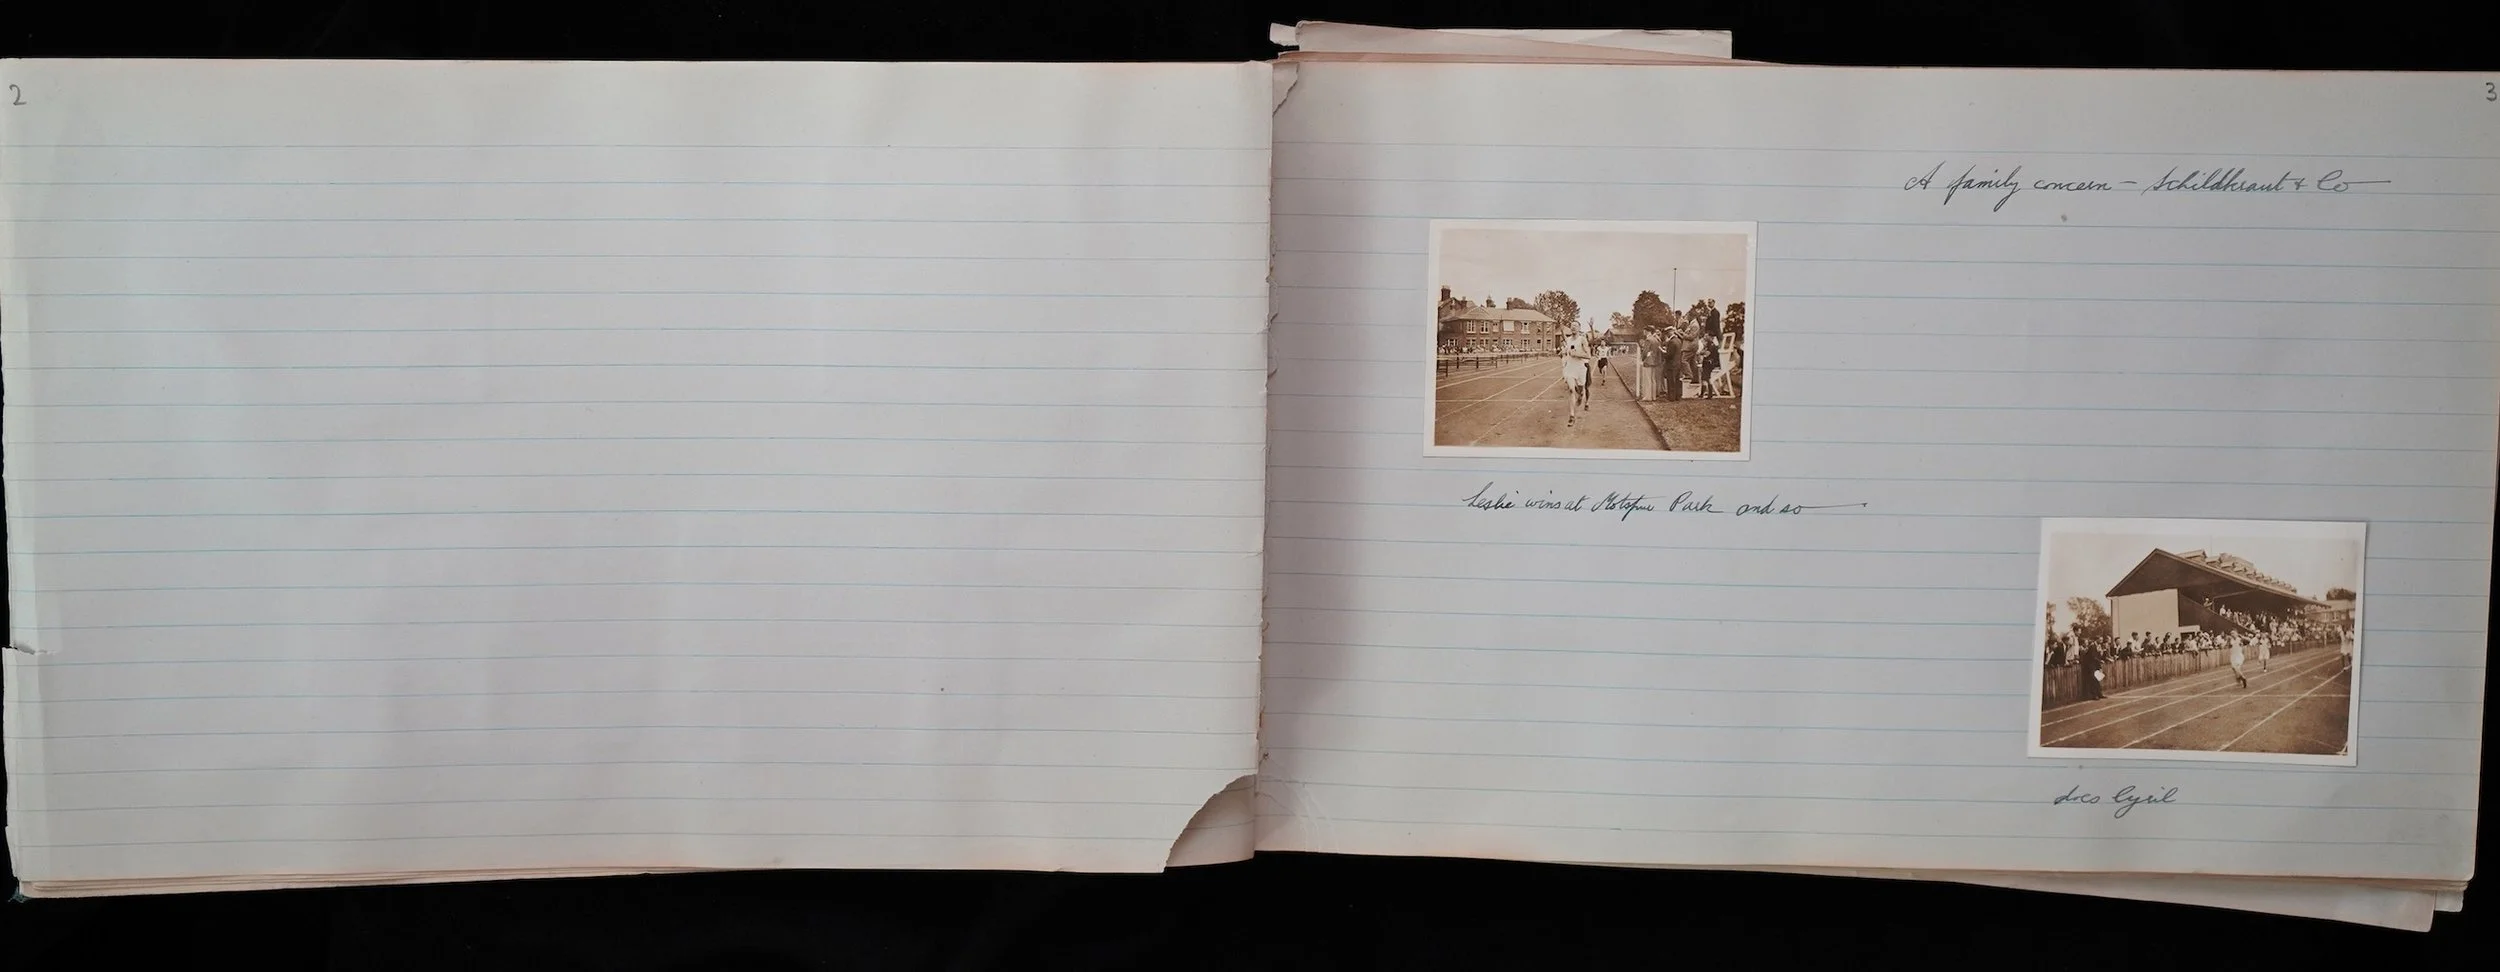 2
3
A family concern – Schildkraut & Co
Leslie wins at Motspur Park and so
does Cyril